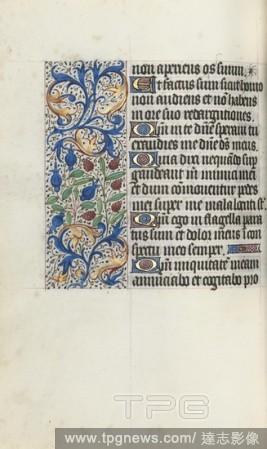 non aperiens os suum.
Et factus sum sicut homo
non audiens et nō habens
in ore suo redargutiones
Qm in te dñe speraui tu
exaudies me dñe ds meus.
Quia dixi nequādo sup
gaudeant m̄ inimici mei
et dum cōmouentur pedes
mei super me mala locuti st̄.
Qm ego in flagella para
tus sum et dolor meus ī con
spectu meo semper.
Qm iniquitatē meam
annūciabo et cogitabo pro
TPG
www.tpgnews.com/達志影像